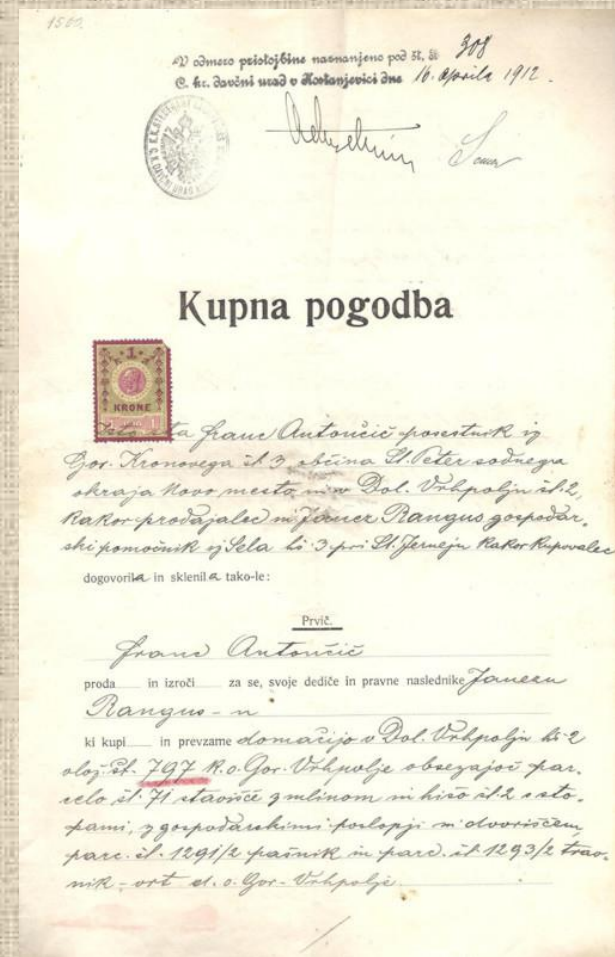 1500.
V odmero pristojbine naznanjeno pod št. št. 308
C. kr. davčni urad v Kostanjevici dne 16. aprila 1912.
Kupna pogodba
1
KRONE
sta Franc Antončič posestnik iz
Gor. Kronovega št. 3 občina St. Peter sodnega
okraja Novo mesto, in v Dol. Vrhpolju št. 2,
kakor prodajalec in Janez Rangus gospodar-
ski pomočnik iz Sela hš. 3 pri St. Jerneju kakor kupovalec
dogovorila in sklenila tako-le:
Prvič.
Franc Antončič
proda in izroči za se, svoje dediče in pravne naslednike Janezu
Rangus-u
ki kupi in prevzame domačijo v Dol. Vrhpolju hš. 2
vlož. št. 797 k. o. Gor. Vrhpolje obsegajoč par-
celo št. 71 stavišče z mlinom in hišo št. 2 s sto-
pami, z gospodarskimi poslopji in dvoriščem,
parc. št. 1291/2 pašnik in parc. št. 1293/2 trav-
nik - vrt d. o. Gor. Vrhpolje.